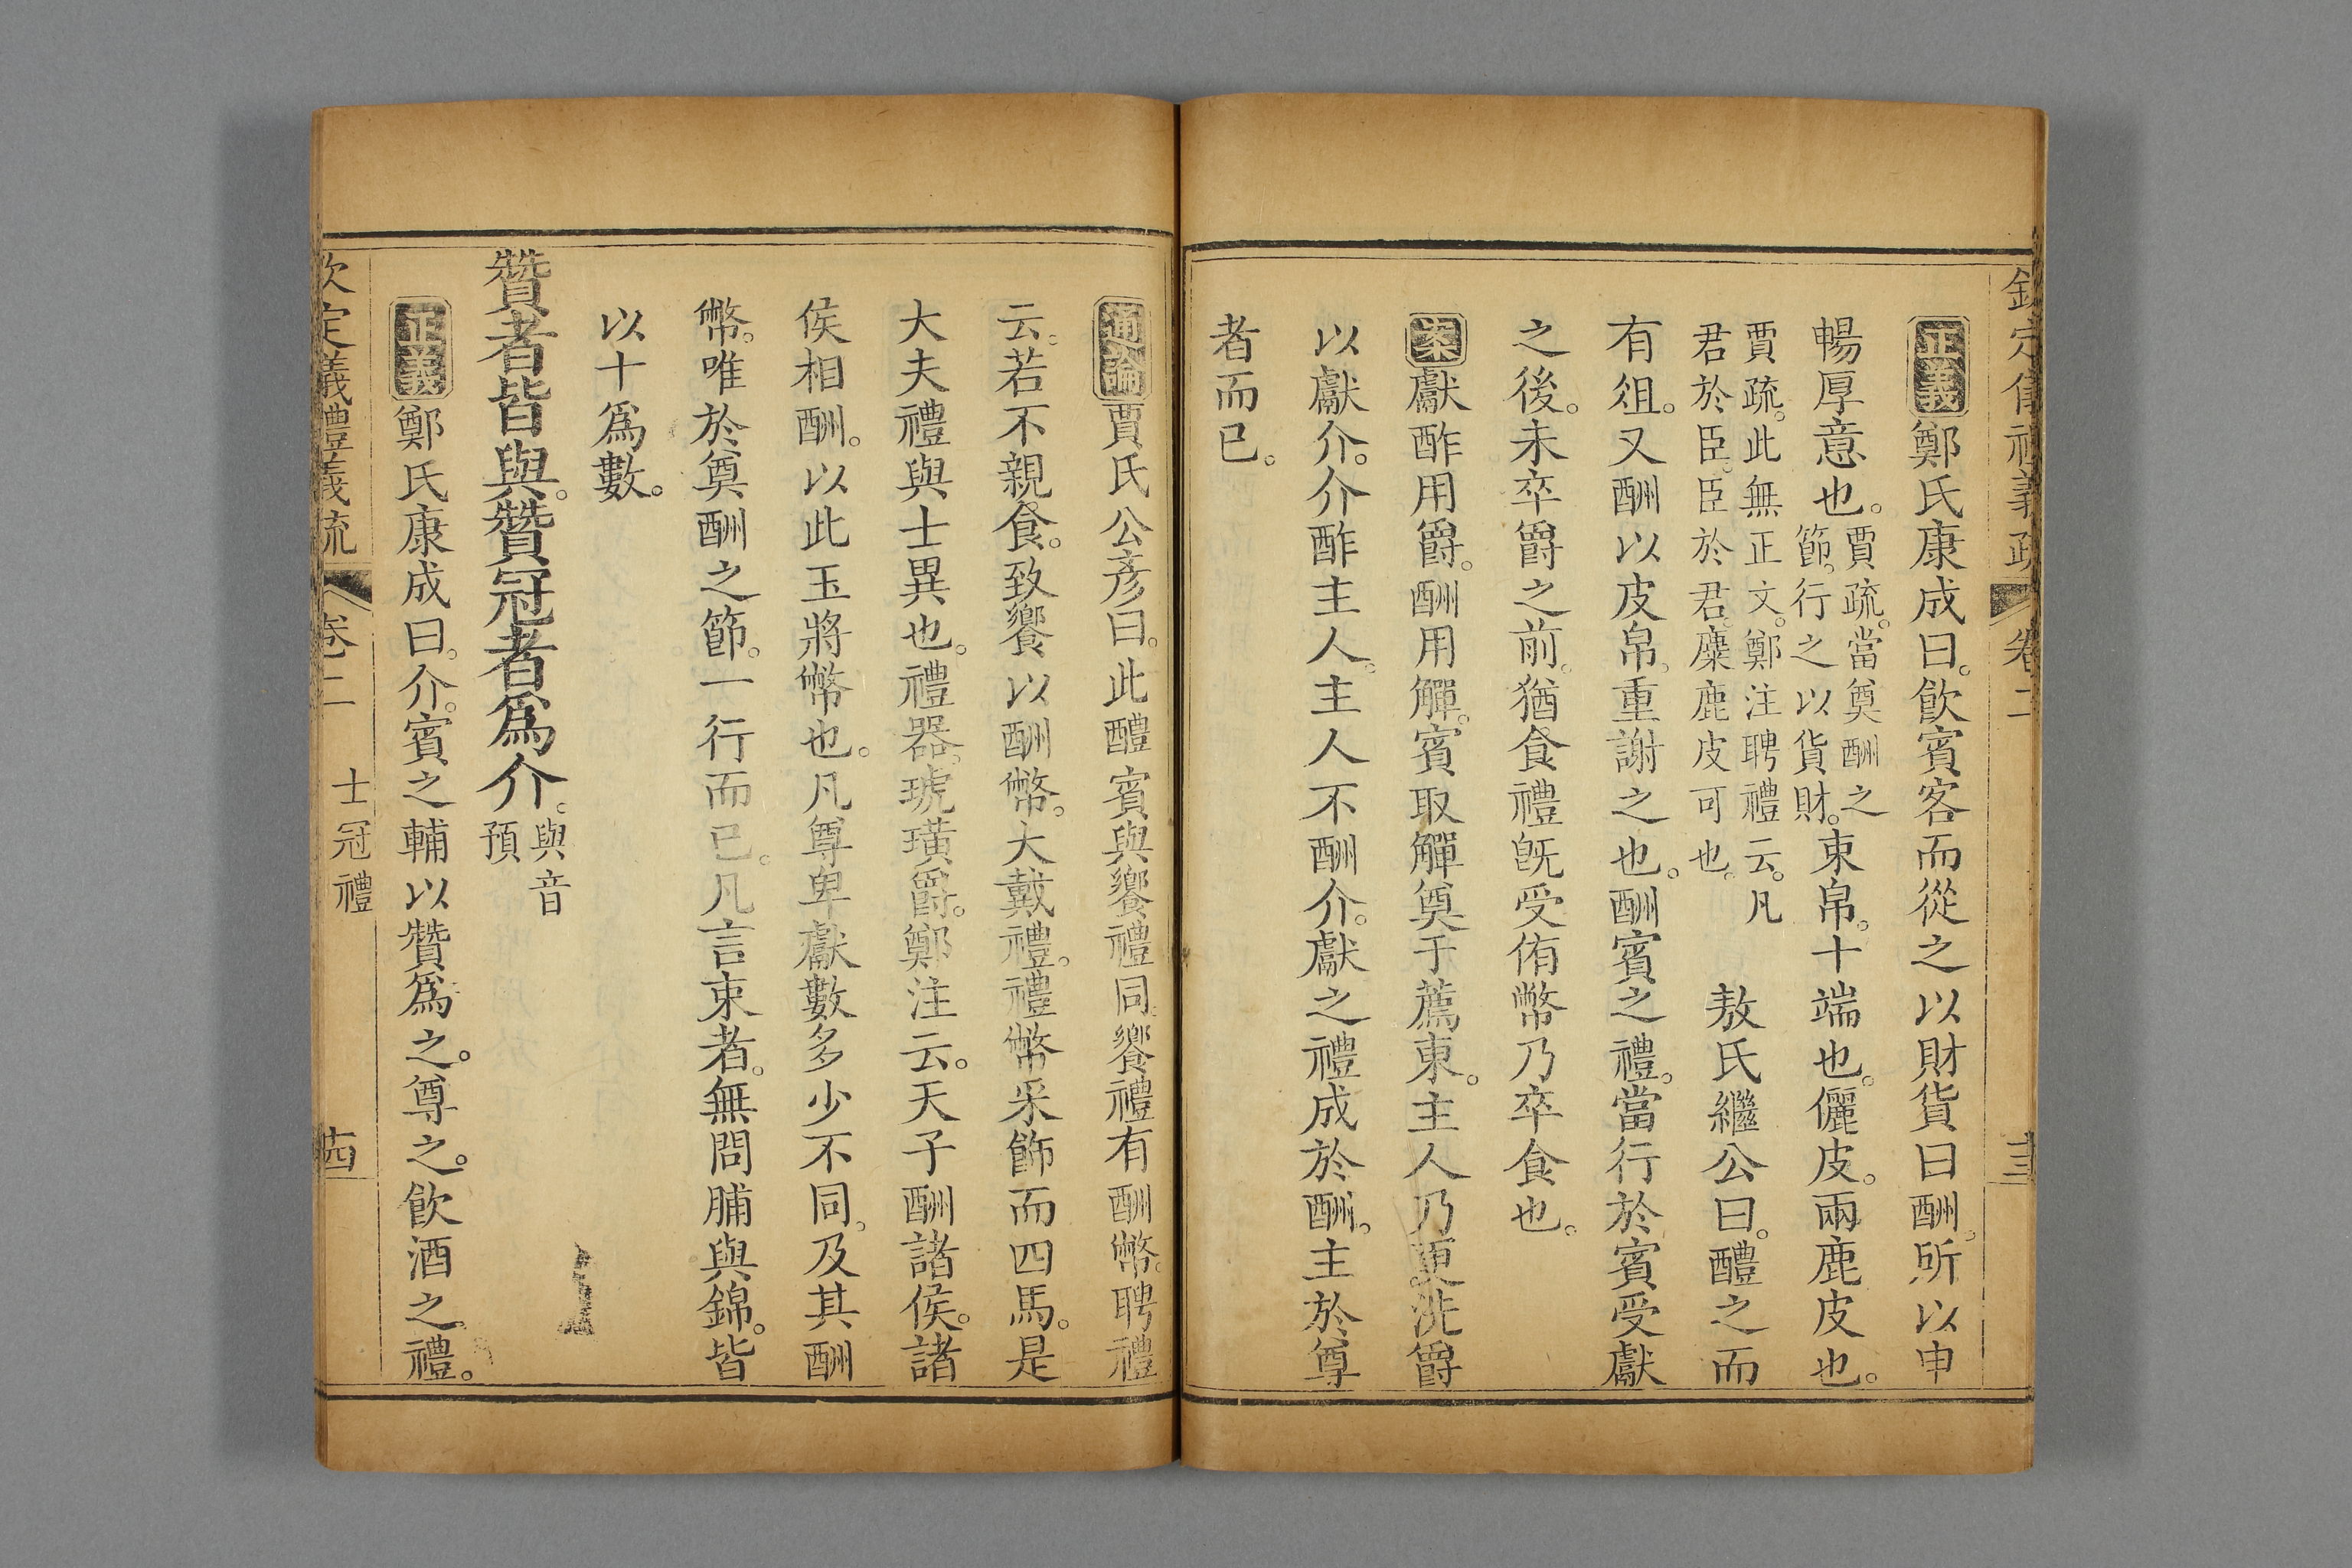 欽定儀禮義疏 卷二 十三
正義鄭氏康成曰。飮賓客而從之以財貨曰酬。所以申
暢厚意也。賈疏。當奠酬之節。行之以貨財。束帛。十端也。儷皮。兩鹿皮也。
賈疏。此無正文。鄭注聘禮云。凡君於臣。臣於君。麋鹿皮可也。 敖氏繼公曰。醴之而
有俎。又酬以皮帛。重謝之也。酬賓之禮。當行於賓受獻
之後。未卒爵之前。猶食禮旣受侑幣乃卒食也。
案獻酢用爵。酬用觶。賓取觶奠于薦東。主人乃更洗爵
以獻介。介酢主人。主人不酬介。獻之禮成於酬。主於尊
者而已。
通論賈氏公彥曰。此醴賓與饗禮同。饗禮有酬幣。聘禮
云。若不親食。致饗以酬幣。大戴禮。禮幣采飾而四馬。是
大夫禮與士異也。禮器。琥璜爵。鄭注云。天子酬諸侯。諸
侯相酬。以此玉將幣也。凡尊卑獻數多少不同。及其酬
幣。唯於奠酬之節。一行而已。凡言束者。無問脯與錦。皆
以十爲數。
贊者皆與。贊冠者爲介。與音預
正義鄭氏康成曰。介。賓之輔以贊爲之。尊之。飮酒之禮。
欽定儀禮義疏 卷二 士冠禮 十四